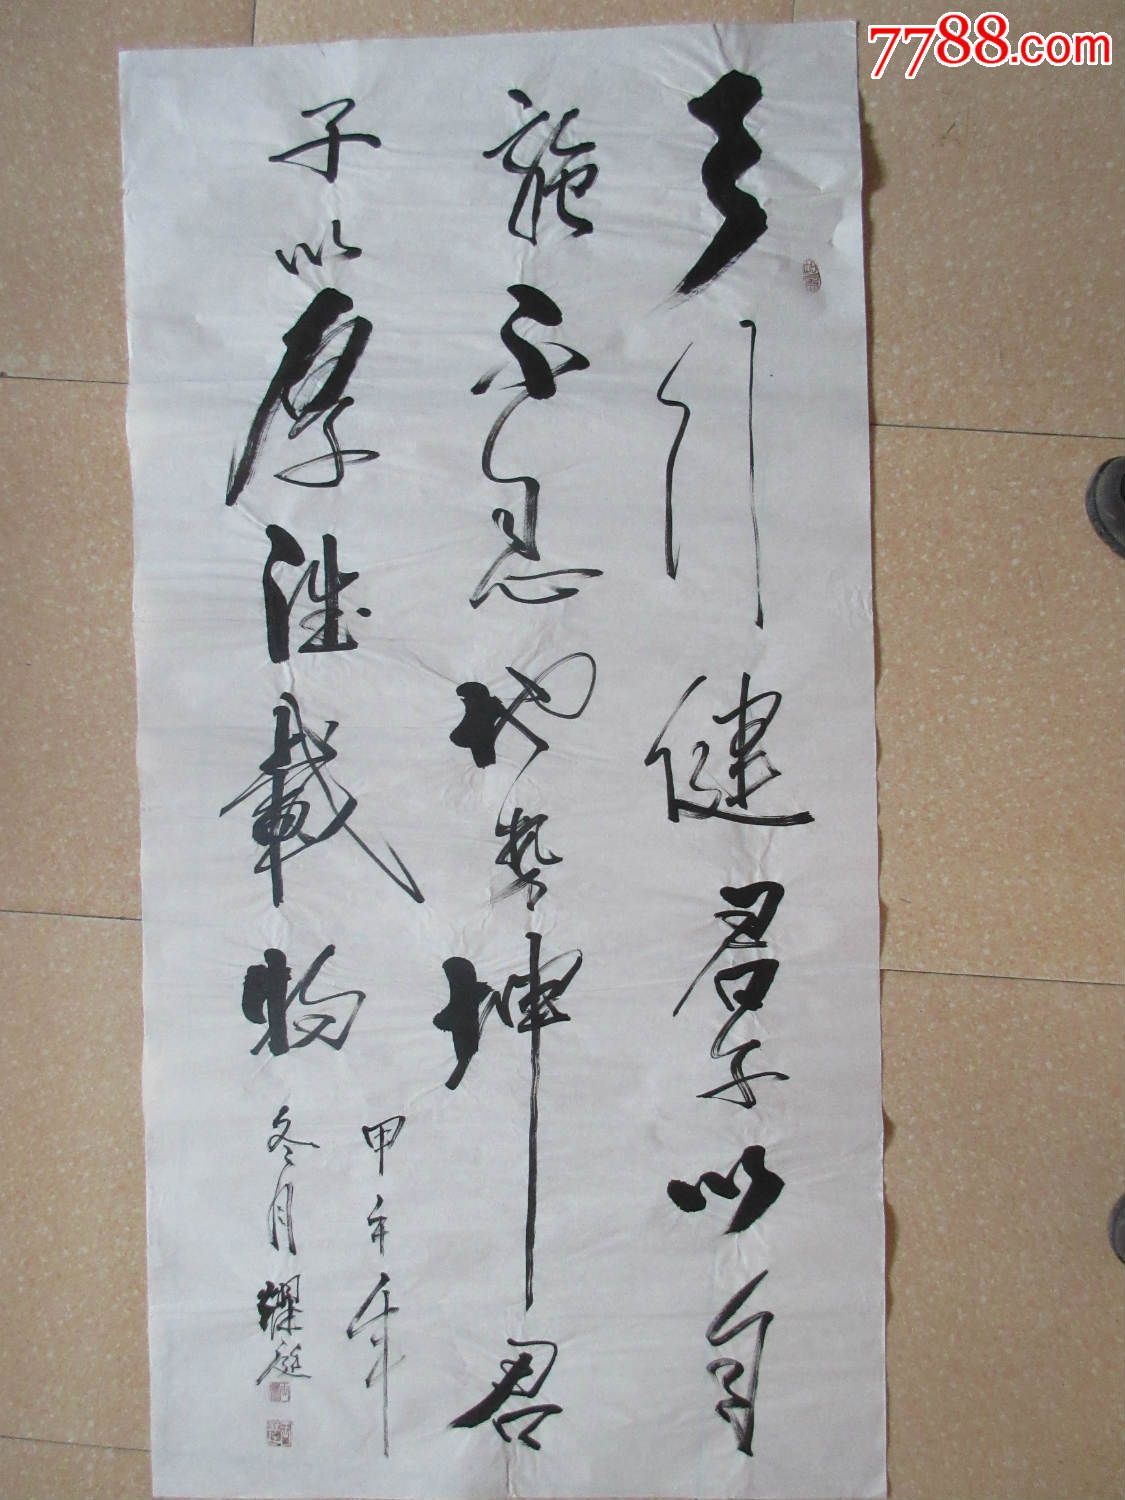 7788.com
天行健君子以自
強不息地势坤君
子以厚德載物
甲午年
冬月耀庭